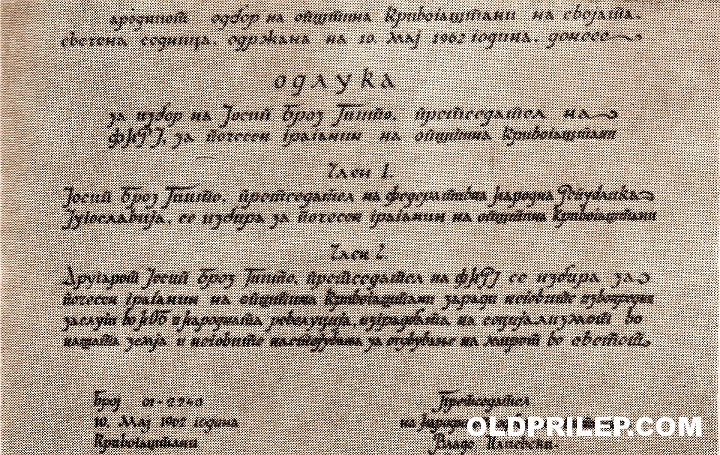 ародниот одбор на општина Кривогаштани на својата,
свечена седница, одржана на 10. мај 1962 година, донесе
ОДЛУКА
за избор на Јосип Броз Тито, претседател на
ФНРЈ, за почесен граѓанин на општина Кривогаштани
Член 1.
Јосип Броз Тито, претседател на федеративна Народна Република
Југославија, се избира за почесен граѓанин на општина Кривогаштани
Член 2.
Другарот Јосип Броз Тито, претседател на ФНРЈ се избира за
почесен граѓанин на општина Кривогаштани заради неговите извонредни
заслуги во НОБ и Народната револуција, изградбата на социјализмот во
нашата земја и неговите настојувања за очување на мирот во светот.
Број
Претседател
10. Мај 1962 година
на Народниот
Кривогаштани
Владо
OLDPRILEP.COM